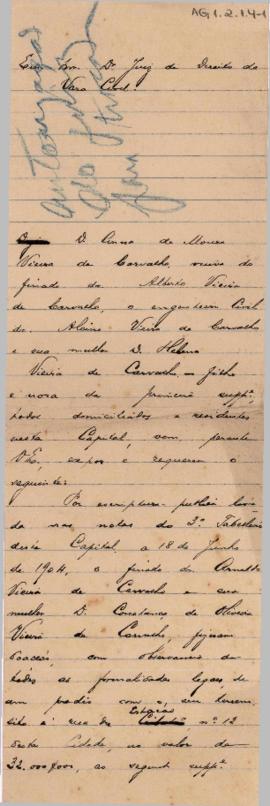 AG1.2.1.4-1
Exmo. Snr. Dr. Juiz de Direito da
Vara Civel
D. Anna de Moura
Vieira de Carvalho, viuva do
finado Dr. Alberto Vieira
de Carvalho, o engenheiro Civil
dr. Alvaro Vieira de Carvalho
e sua mulher D. Helena
Vieira de Carvalho, filho
e nora da primeira suppte,
todos domiciliados e residentes
nesta Capital, vem perante
V. Ex. expor e requerer o
seguinte:
Por escriptura publica lavra-
da nas notas do 3º Tabellião
desta Capital, a 18 de Junho
de 1904, o finado dr. Arnaldo
Vieira de Carvalho e sua
mulher D. Constança de Oliveira
Vieira de Carvalho, fizeram
doação, com observancia de
todas as formalidades legaes, de
um predio com o seu terreno,
sito á rua da Estação nº 12
desta Cidade, no valor de
32.000$000, ao segundo suppte